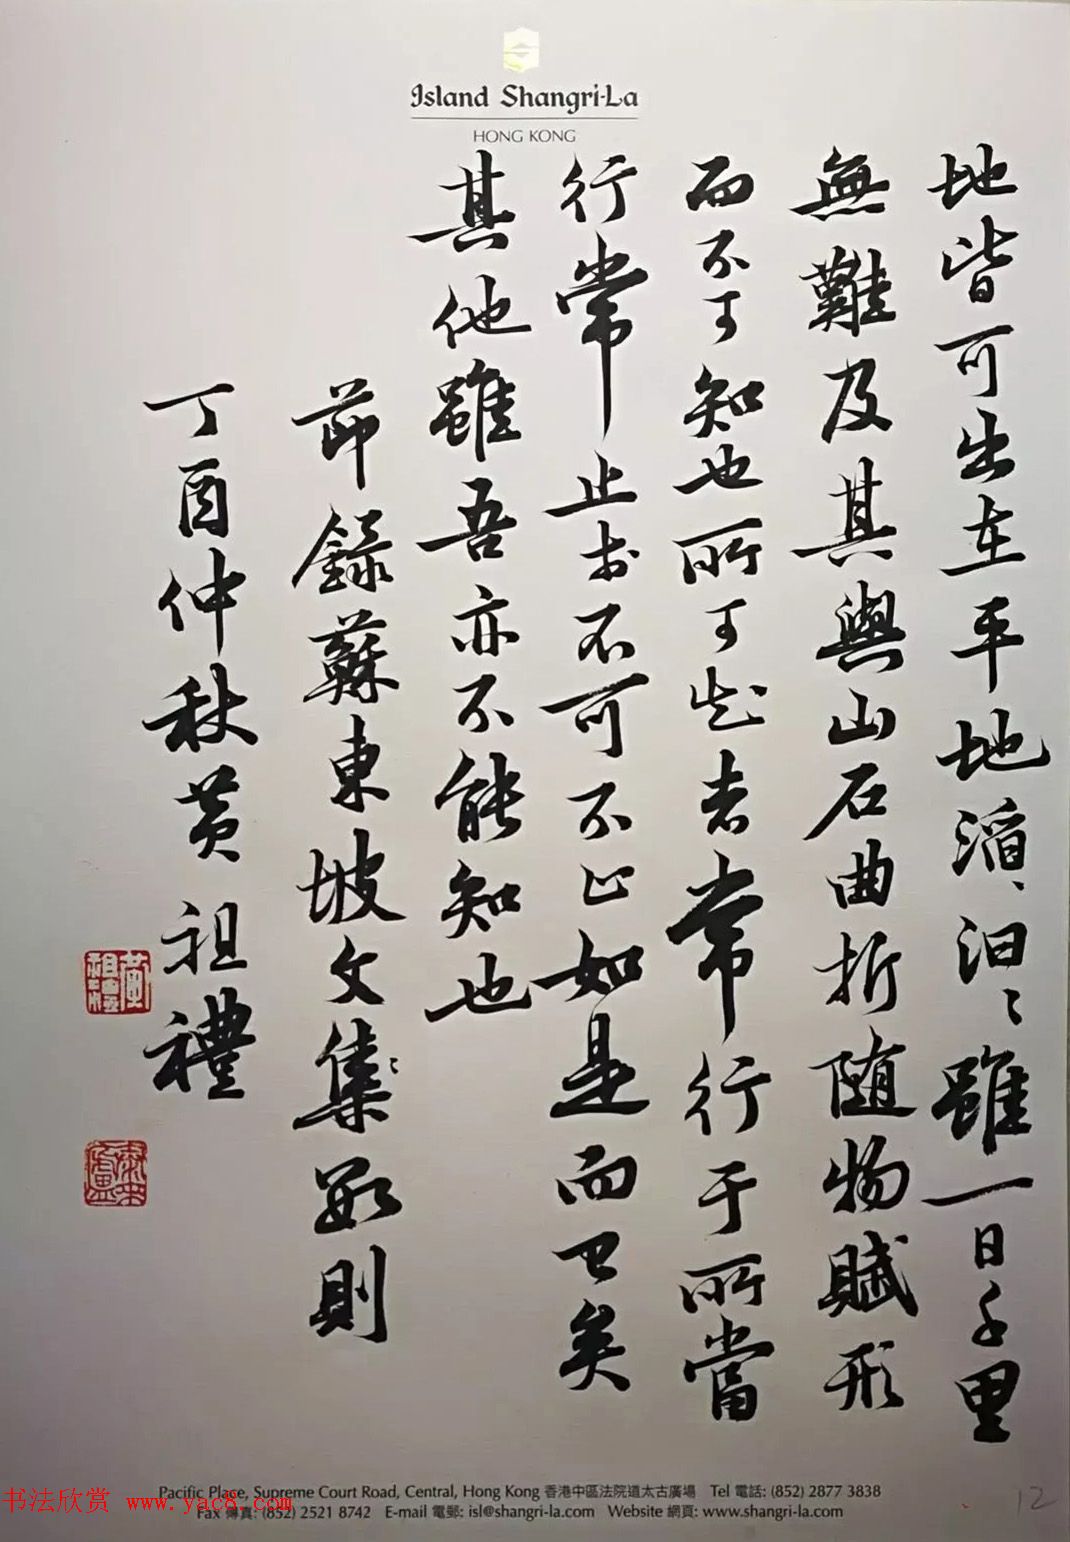 Island Shangri-La
HONG KONG
地皆可出在平地滔、汩〻雖一日千里
無難及其與山石曲折随物賦形
而不可知也所可知者常行于所當
行常止於不可不止如是而已矣
其他雖吾亦不能知也
節錄蘇東坡文集〻數則
丁酉仲秋黄祖禮
黃祖禮
Pacific Place, Supreme Court Road, Central, Hong Kong 香港中區法院道太古廣場 Tel 電話: (852) 2877 3838
Fax 傳真: (852) 2521 8742 E-mail 電郵: isl@shangri-la.com Website 網頁: www.shangri-la.com
书法欣赏 www.yac8.com
12